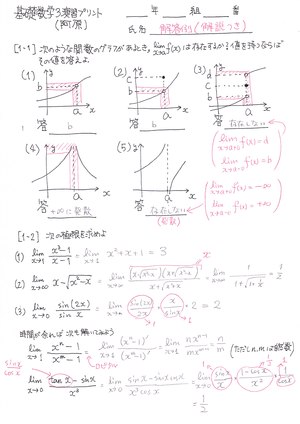 基礎数学3演習プリント
(町原)
年 組 番
氏名 解答例(解説つき)
[1-1] 次のような関数のグラフがあるとき, lim x→a f(x) は存在するか? 値を持つならば
その値を答えよ
(1) (2) (3)
答 b 答 b 答 存在しない
lim x→a+0 f(x)=d
lim x→a-0 f(x)=b
(4) (5)
答 +∞に発散 答 存在しない
(発散)
lim x→a-0 f(x)=-∞
lim x→a+0 f(x)=+∞
[1-2] 次の極限を求めよ
(1) lim x→1 (x³-1)/(x-1) = lim x→1 x²+x+1 = 3
(2) lim x→∞ x-√(x²-x)
(3) lim x→0 sin(2x)/sin(x) = lim x→0 sin(2x)/2x · x/sinx · 2 = 2
時間が余れば次も解いてみよう
lim x→1 (xⁿ-1)/(xᵐ-1) = lim x→1 (xⁿ-1)'/(xᵐ-1)' = lim x→1 nxⁿ⁻¹/mxᵐ⁻¹ = n/m (ただし n, m は整数)
sinx/cosx
lim x→0 (tanx-sinx)/x³ = lim x→0 (sinx-sinx cosx)/(x³cosx) = lim x→0 sinx/x · (1-cosx)/x² · 1/cosx
= 1/2